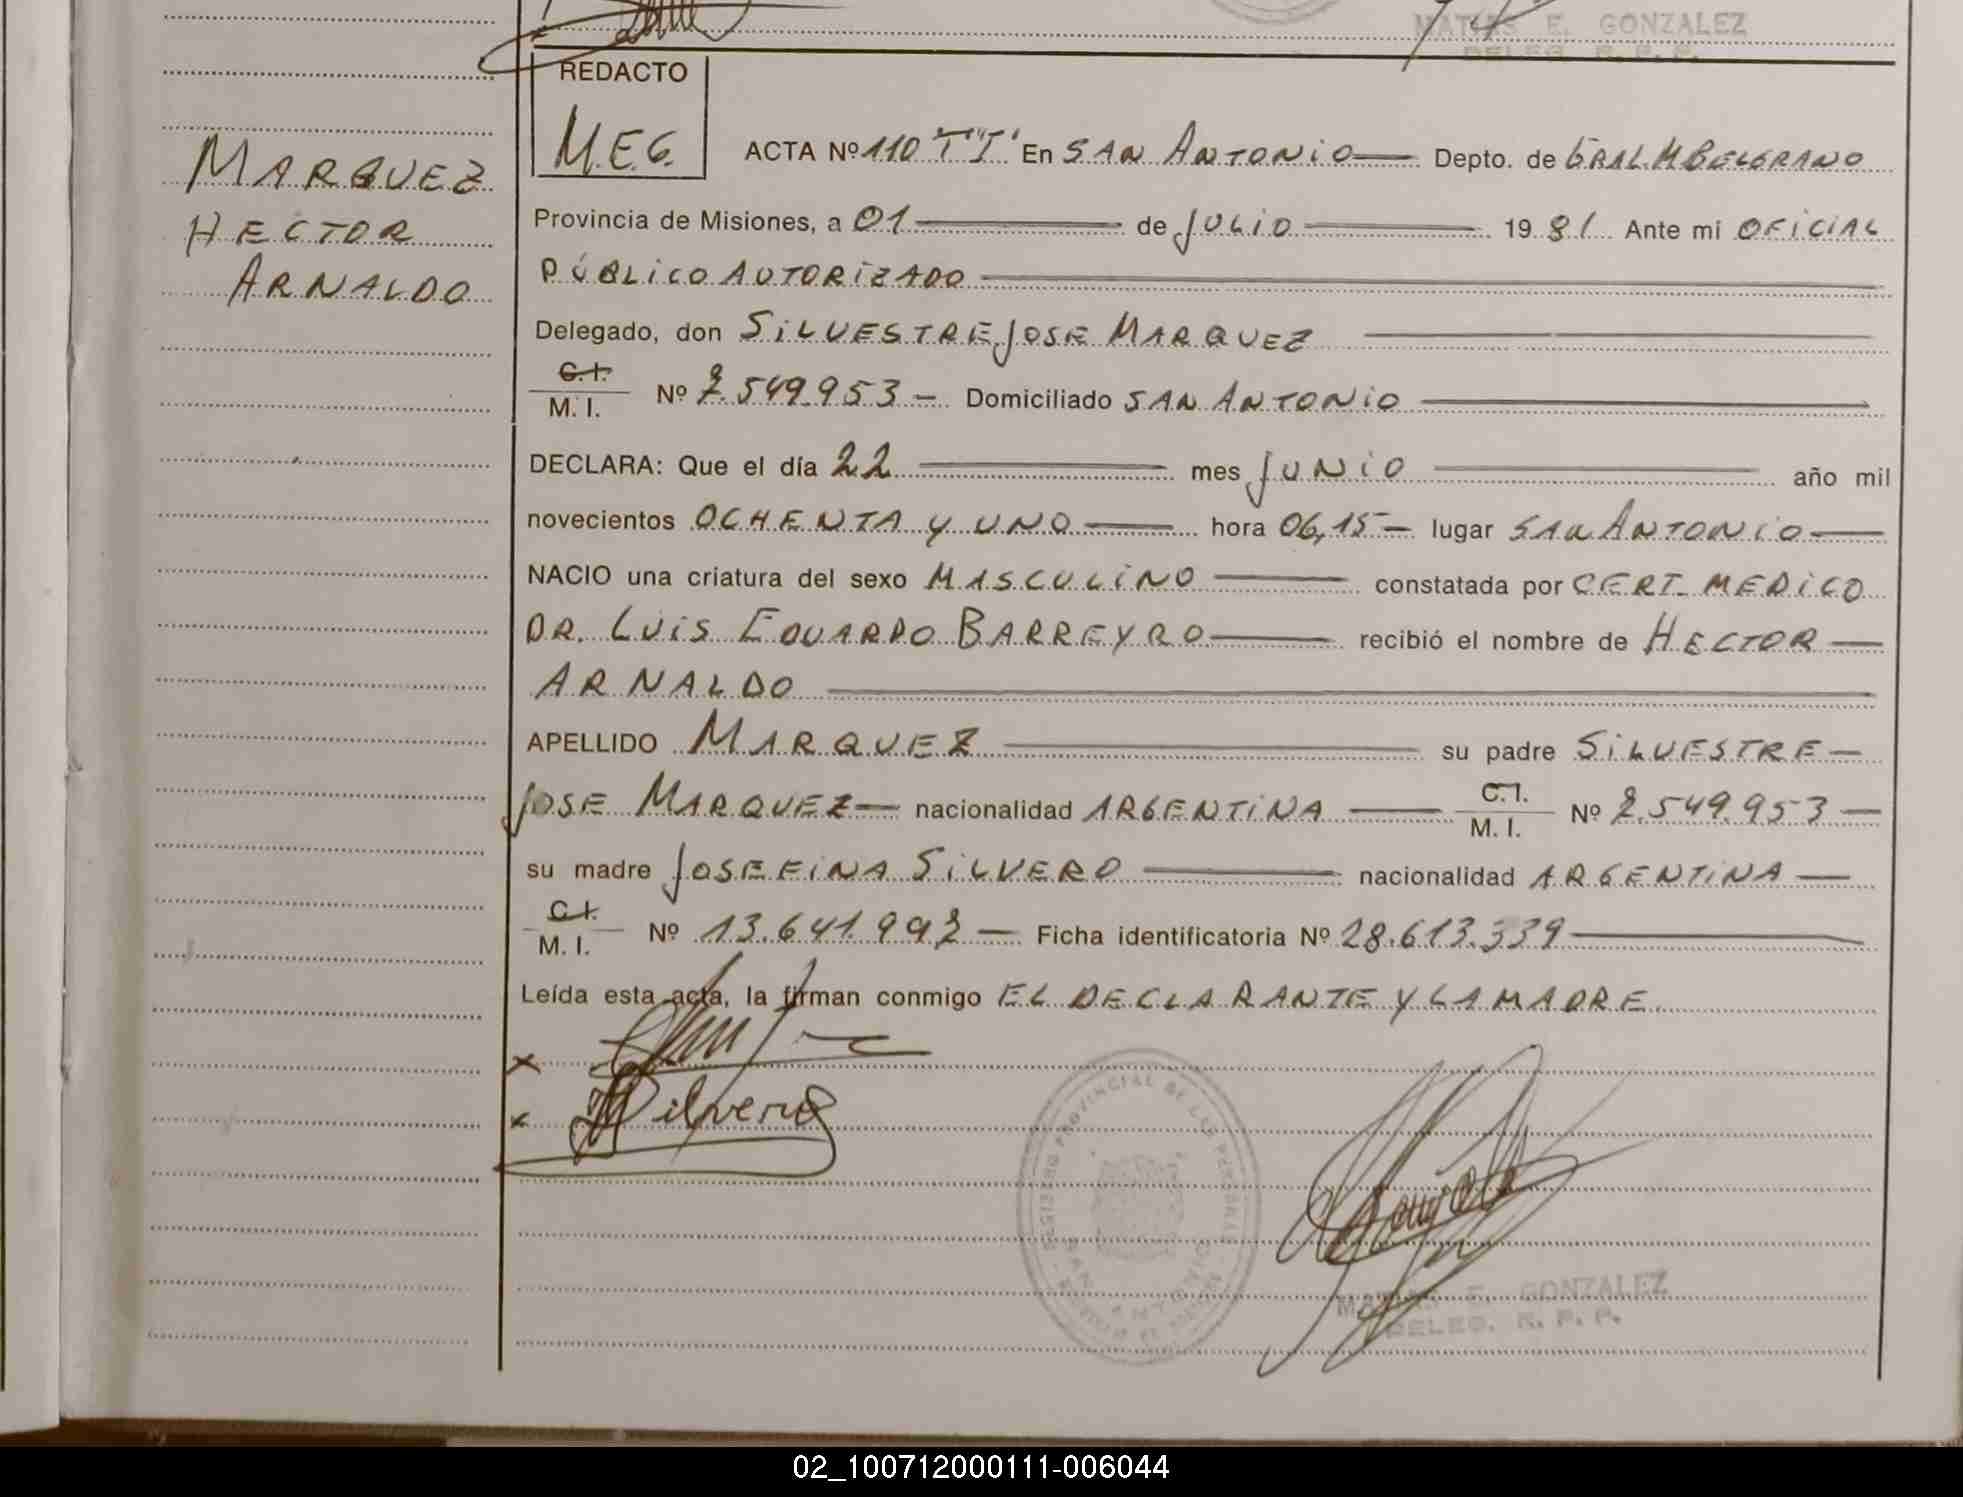 MATIAS E. GONZALEZ
DELEG. R. P. P.
REDACTO
M.E.G.
MARQUEZ
HECTOR
ARNALDO
ACTA Nº 110 T"I" En SAN ANTONIO Depto. de GRAL M BELGRANO
Provincia de Misiones, a 01 de JULIO 1981 Ante mi OFICIAL
PÚBLICO AUTORIZADO
Delegado, don SILVESTRE JOSE MARQUEZ
C.I.
M. I. Nº 7.549.953 - Domiciliado SAN ANTONIO
DECLARA: Que el día 22 mes JUNIO año mil
novecientos OCHENTA Y UNO hora 06,15 - lugar SAN ANTONIO
NACIO una criatura del sexo MASCULINO constatada por CERT. MEDICO
DR. LUIS EDUARDO BARREYRO recibió el nombre de HECTOR
ARNALDO
APELLIDO MARQUEZ su padre SILVESTRE
JOSE MARQUEZ nacionalidad ARGENTINA C.I.
M. I. Nº .549.953
su madre JOSEFINA SILVERO nacionalidad ARGENTINA
C.I.
M. I. Nº 13.641.992 - Ficha identificatoria Nº 28.613.339
Leída esta acta, la firman conmigo EL DECLARANTE Y LA MADRE.
x
x Silvero
REGISTRO PROVINCIAL DE LAS PERSONAS
SAN ANTONIO
MATIAS E. GONZALEZ
DELEG. R. P. P.
02_100712000111-006044